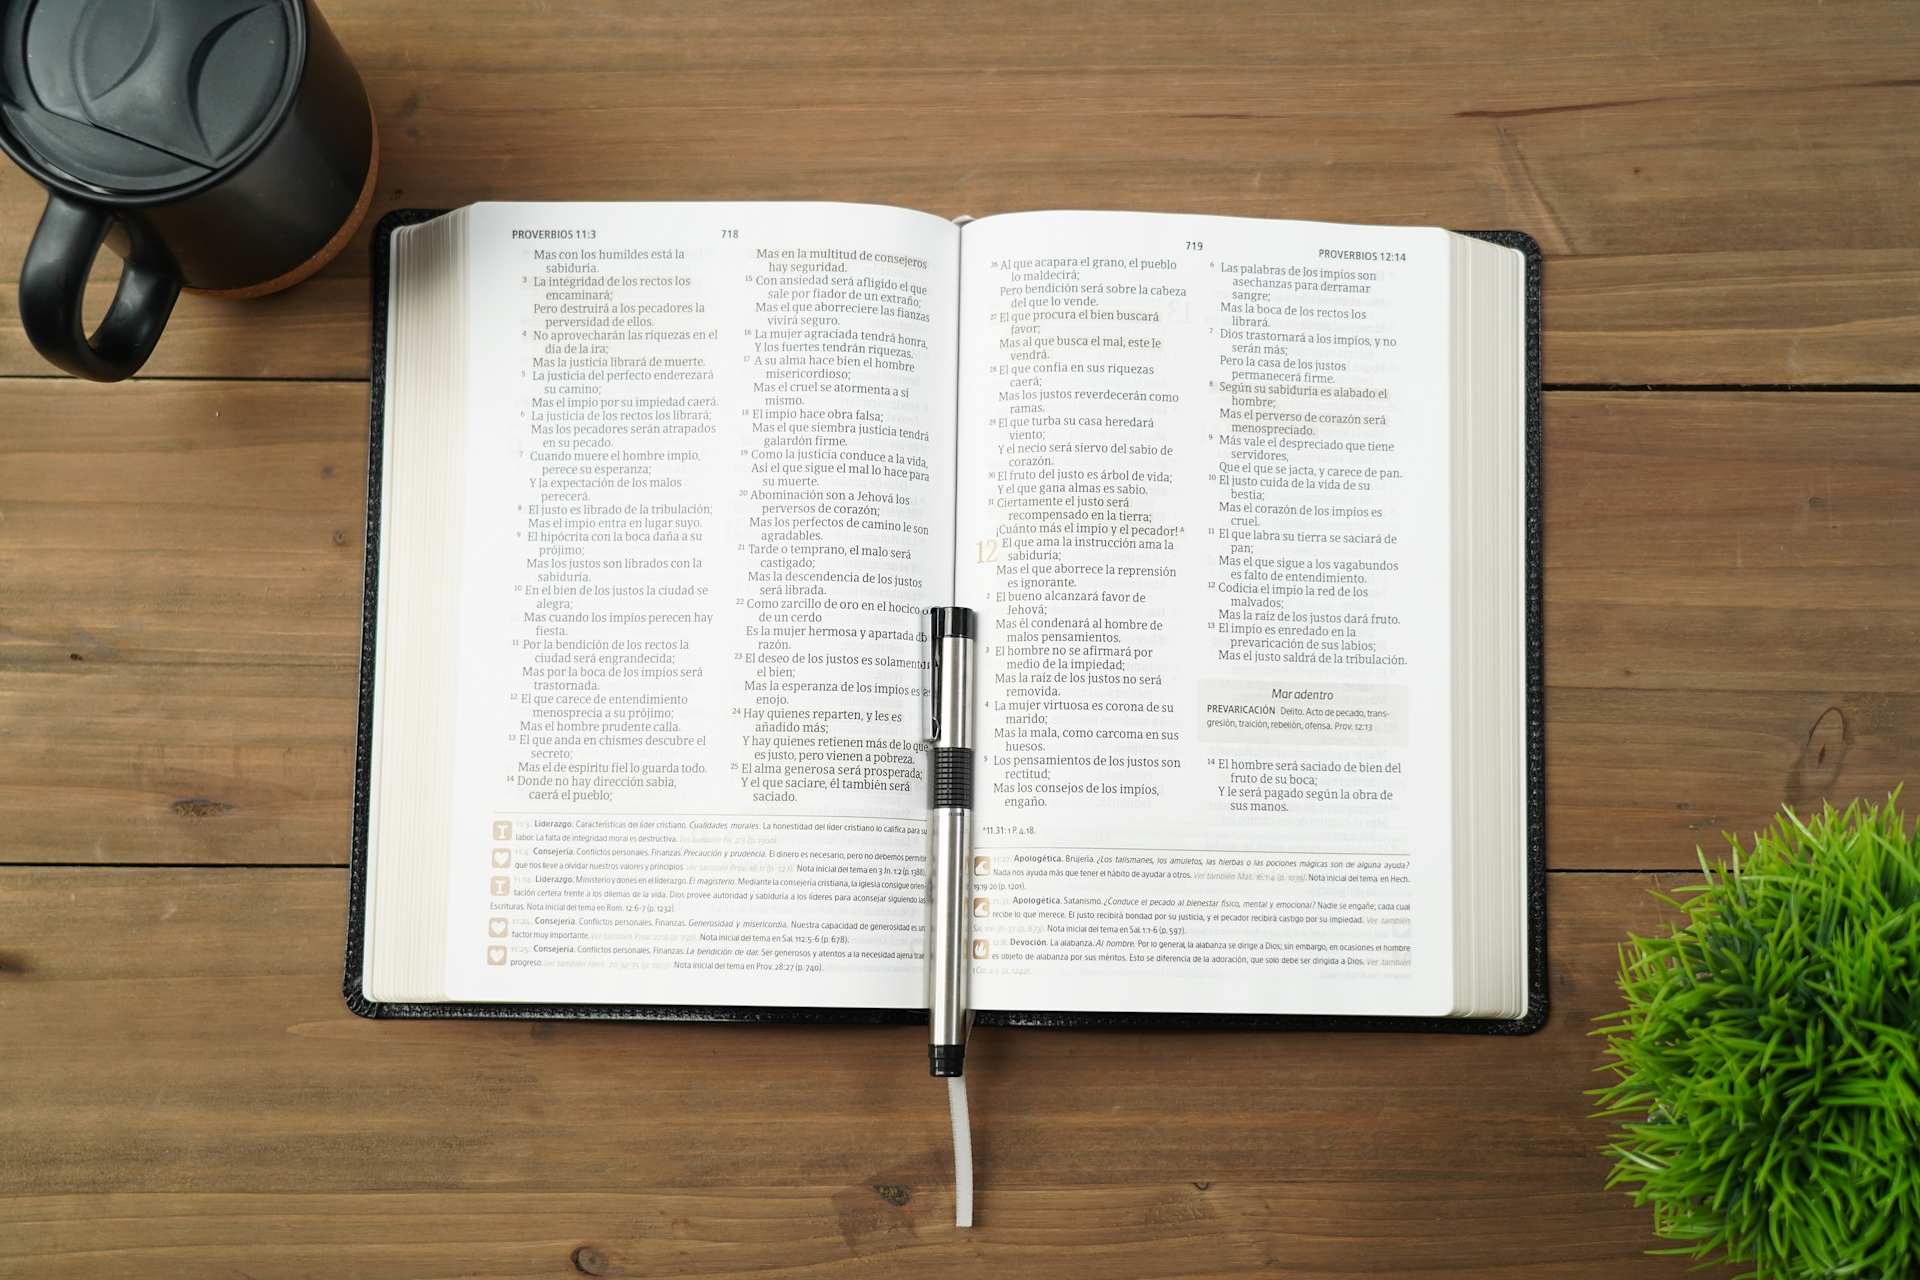 PROVERBIOS 11:3
718
Mas con los humildes está la
sabiduría.
3 La integridad de los rectos los
encaminará;
Pero destruirá a los pecadores la
perversidad de ellos.
4 No aprovecharán las riquezas en el
día de la ira;
Mas la justicia librará de muerte.
5 La justicia del perfecto enderezará
su camino;
Mas el impío por su impiedad caerá.
6 La justicia de los rectos los librará;
Mas los pecadores serán atrapados
en su pecado.
7 Cuando muere el hombre impío,
perece su esperanza;
Y la expectación de los malos
perecerá.
8 El justo es librado de la tribulación;
Mas el impío entra en lugar suyo.
9 El hipócrita con la boca daña a su
prójimo;
Mas los justos son librados con la
sabiduría.
10 En el bien de los justos la ciudad se
alegra;
Mas cuando los impíos perecen hay
fiesta.
11 Por la bendición de los rectos la
ciudad será engrandecida;
Mas por la boca de los impíos será
trastornada.
12 El que carece de entendimiento
menosprecia a su prójimo;
Mas el hombre prudente calla.
13 El que anda en chismes descubre el
secreto;
Mas el de espíritu fiel lo guarda todo.
14 Donde no hay dirección sabia,
caerá el pueblo;
Mas en la multitud de consejeros
hay seguridad.
15 Con ansiedad será afligido el que
sale por fiador de un extraño;
Mas el que aborreciere las fianzas
vivirá seguro.
16 La mujer agraciada tendrá honra,
Y los fuertes tendrán riquezas.
17 A su alma hace bien el hombre
misericordioso;
Mas el cruel se atormenta a sí
mismo.
18 El impío hace obra falsa;
Mas el que siembra justicia tendrá
galardón firme.
19 Como la justicia conduce a la vida,
Así el que sigue el mal lo hace para
su muerte.
20 Abominación son a Jehová los
perversos de corazón;
Mas los perfectos de camino le son
agradables.
21 Tarde o temprano, el malo será
castigado;
Mas la descendencia de los justos
será librada.
22 Como zarcillo de oro en el hocico
de un cerdo
Es la mujer hermosa y apartada de
razón.
23 El deseo de los justos es solamente
el bien;
Mas la esperanza de los impíos es el
enojo.
24 Hay quienes reparten, y les es
añadido más;
Y hay quienes retienen más de lo que
es justo, pero vienen a pobreza.
25 El alma generosa será prosperada;
Y el que saciare, él también será
saciado.
Liderazgo. Características del líder cristiano. Cualidades morales: La honestidad del líder cristiano lo califica para su
labor. La falta de integridad moral es destructiva.
11:4. Consejería. Conflictos personales. Finanzas. Precaución y prudencia. El dinero es necesario, pero no debemos permitir
que nos lleve a olvidar nuestros valores y principios. Nota inicial del tema en 3 Jn. 1:2 (p. 1388).
11:14. Liderazgo. Ministerio y dones en el liderazgo. El magisterio. Mediante la consejería cristiana, la iglesia consigue orien-
tación certera frente a los dilemas de la vida. Dios provee autoridad y sabiduría a los líderes para aconsejar siguiendo las
Escrituras. Nota inicial del tema en Rom. 12:6-7 (p. 1232).
11:24. Consejería. Conflictos personales. Finanzas. Generosidad y misericordia. Nuestra capacidad de generosidad es un
factor muy importante. Nota inicial del tema en Sal. 112:5-6 (p. 678).
11:25. Consejería. Conflictos personales. Finanzas. La bendición de dar. Ser generosos y atentos a la necesidad ajena trae
progreso. Nota inicial del tema en Prov. 28:27 (p. 740).
719
PROVERBIOS 12:14
26 Al que acapara el grano, el pueblo
lo maldecirá;
Pero bendición será sobre la cabeza
del que lo vende.
27 El que procura el bien buscará
favor;
Mas al que busca el mal, este le
vendrá.
28 El que confía en sus riquezas
caerá;
Mas los justos reverdecerán como
ramas.
29 El que turba su casa heredará
viento;
Y el necio será siervo del sabio de
corazón.
30 El fruto del justo es árbol de vida;
Y el que gana almas es sabio.
31 Ciertamente el justo será
recompensado en la tierra;
¡Cuánto más el impío y el pecador! A
12 El que ama la instrucción ama la
sabiduría;
Mas el que aborrece la reprensión
es ignorante.
2 El bueno alcanzará favor de
Jehová;
Mas él condenará al hombre de
malos pensamientos.
3 El hombre no se afirmará por
medio de la impiedad;
Mas la raíz de los justos no será
removida.
4 La mujer virtuosa es corona de su
marido;
Mas la mala, como carcoma en sus
huesos.
5 Los pensamientos de los justos son
rectitud;
Mas los consejos de los impíos,
engaño.
A 11.31: 1 P. 4.18.
6 Las palabras de los impíos son
asechanzas para derramar
sangre;
Mas la boca de los rectos los
librará.
7 Dios trastornará a los impíos, y no
serán más;
Pero la casa de los justos
permanecerá firme.
8 Según su sabiduría es alabado el
hombre;
Mas el perverso de corazón será
menospreciado.
9 Más vale el despreciado que tiene
servidores,
Que el que se jacta, y carece de pan.
10 El justo cuida de la vida de su
bestia;
Mas el corazón de los impíos es
cruel.
11 El que labra su tierra se saciará de
pan;
Mas el que sigue a los vagabundos
es falto de entendimiento.
12 Codicia el impío la red de los
malvados;
Mas la raíz de los justos dará fruto.
13 El impío es enredado en la
prevaricación de sus labios;
Mas el justo saldrá de la tribulación.
Mar adentro
PREVARICACIÓN Delito. Acto de pecado, trans-
gresión, traición, rebelión, ofensa. Prov. 12:13
14 El hombre será saciado de bien del
fruto de su boca;
Y le será pagado según la obra de
sus manos.
11:27. Apologética. Brujería. ¿Los talismanes, los amuletos, las hierbas o las pociones mágicas son de alguna ayuda?
Nada nos ayuda más que tener el hábito de ayudar a otros. Nota inicial del tema en Hech.
19:19-20 (p. 1201).
11:31. Apologética. Satanismo. ¿Conduce el pecado al bienestar físico, mental y emocional? Nadie se engañe; cada cual
recibe lo que merece. El justo recibirá bondad por su justicia, y el pecador recibirá castigo por su impiedad. Ver también
Nota inicial del tema en Sal. 1:1-6 (p. 597).
12:8. Devoción. La alabanza. Al hombre. Por lo general, la alabanza se dirige a Dios; sin embargo, en ocasiones el hombre
es objeto de alabanza por sus méritos. Esto se diferencia de la adoración, que solo debe ser dirigida a Dios. Ver también